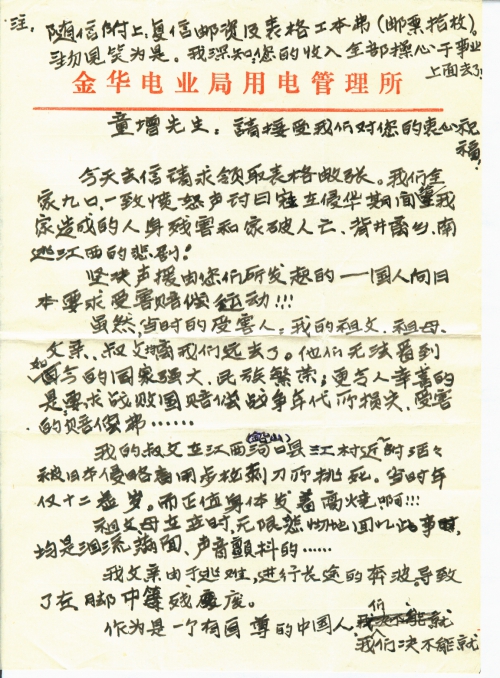 注: 随信附上复信邮资及表格工本弗(邮票拾枚).
勿见笑为是。我深知您的收入全部操心于事业
上面去了!
金华电业局用电管理所
童增先生: 請接受我们对您的衷心祝
福!
今天去信請求领取表格数张。我们全
家九口一致愤怒声讨日寇在侵华期间我
家造成的人身残害和家破人亡、背井离乡、南
逃江西的悲剧!
坚决声援由您们所发起的一一国人向日
本要求受害赔偿运动!!!
虽然,当时的受害人:我的祖父、祖母、
父亲、叔父离我们远去了。他们无法看到
如今的国家强大、民族繁荣;更令人幸喜的
是:要求战败国赔偿战争年代所损失、受害
的赔偿弗……
我的叔父在江西河口县(铅山)江村近附活々
被日本侵略者用步枪刺刀所挑死。当时年
仅十二岁。而正值身体发着高烧啊!!!
祖父母在世时,无限悲切地回忆此事时,
均是泪流满面、声音颤抖的……
我父亲由于逃难,进行长途的奔波.导致
了左脚中等残废度。
作为是一个有自尊的中国人
我们决不能就